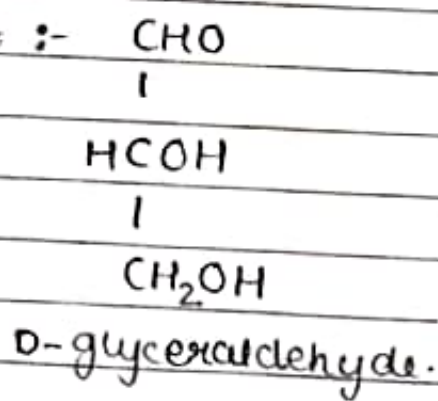 :- CHO
|
HCOH
|
CH₂OH
D-glyceraldehyde.